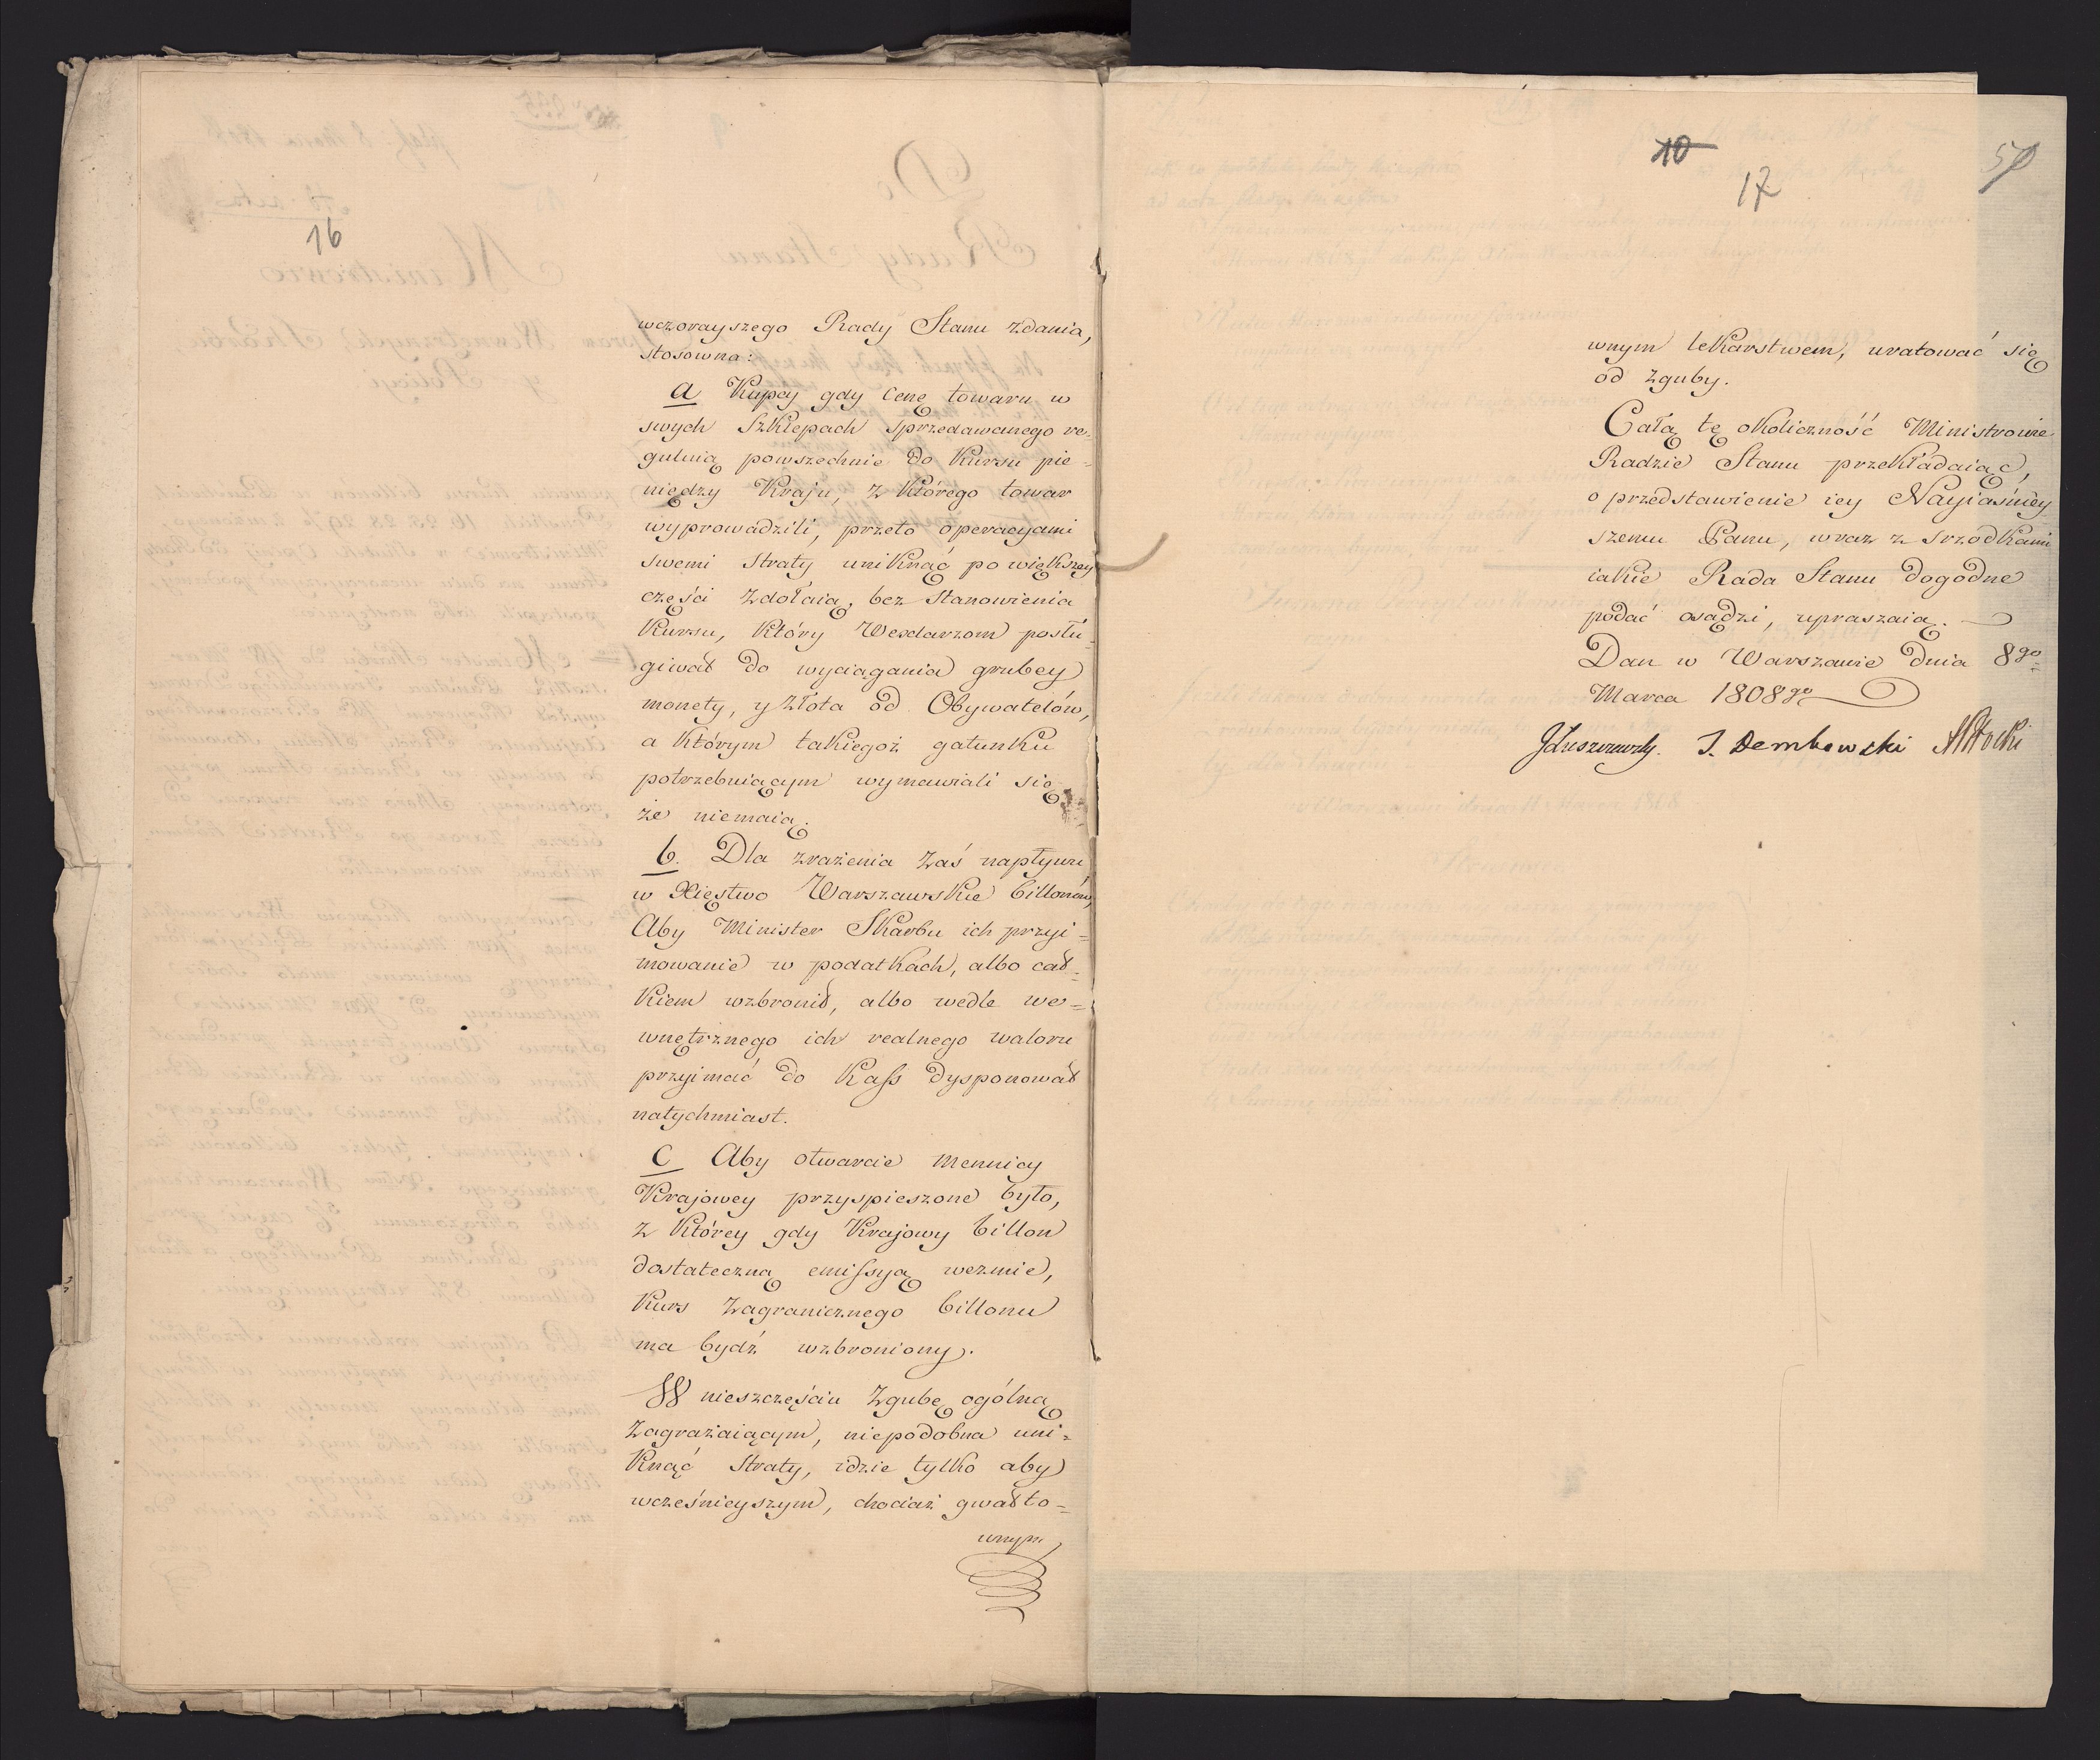 16
wczorayszego Rady Stanu zdania,
stosowna:
a Kupcy gdy Cenę towaru w
swych Szklepach sprzedawanego re-
gulują powszechnie do Kursu pie-
niędzy Kraju, z którego towar
wyprowadzili, przeto operacyami
swemi straty uniknąć po większey
części zdołaią, bez stanowienia
Kursu, który Wexlarzom posłu-
giwał do wyciągania grubey
monety, y złota od Obywatelów,
a którym takiegoż gatunku
potrzebuiącym wymawiali się
że niemaią.
b. Dla zrażenia zaś napływu
w Xięstwo Warszawskie billonów,
Aby Minister Skarbu ich przyi=
mowanie w podatkach, albo cał-
kiem wzbronił, albo wedle we=
wnętrznego ich realnego waloru
przyimać do Kass dysponował
natychmiast.
C Aby otwarcie mennicy
Krajowey przyspieszone było,
z którey gdy Krajowy billon
dostateczną emissyą weźmie,
Kurs zagranicznego billonu
ma bydź wzbroniony.
W nieszczęściu zgubę ogólną
zagrażaiącym, niepodobna uni=
knąć straty, idzie tylko aby
wcześnieyszym, chociaż gwałto=
wnym
10
17
wnym lekarstwem, uratować się
od zguby.
Całą tę okoliczność Ministrowie
Radzie Stanu przekładaiąc,
o przedstawienie iey Nayiaśniey
szemu Panu, wraz z srzodkami
iakie Rada Stanu dogodne
podać osądzi, upraszaią.
Dan w Warszawie dnia 8go
Marca 1808go
J. Dembowski